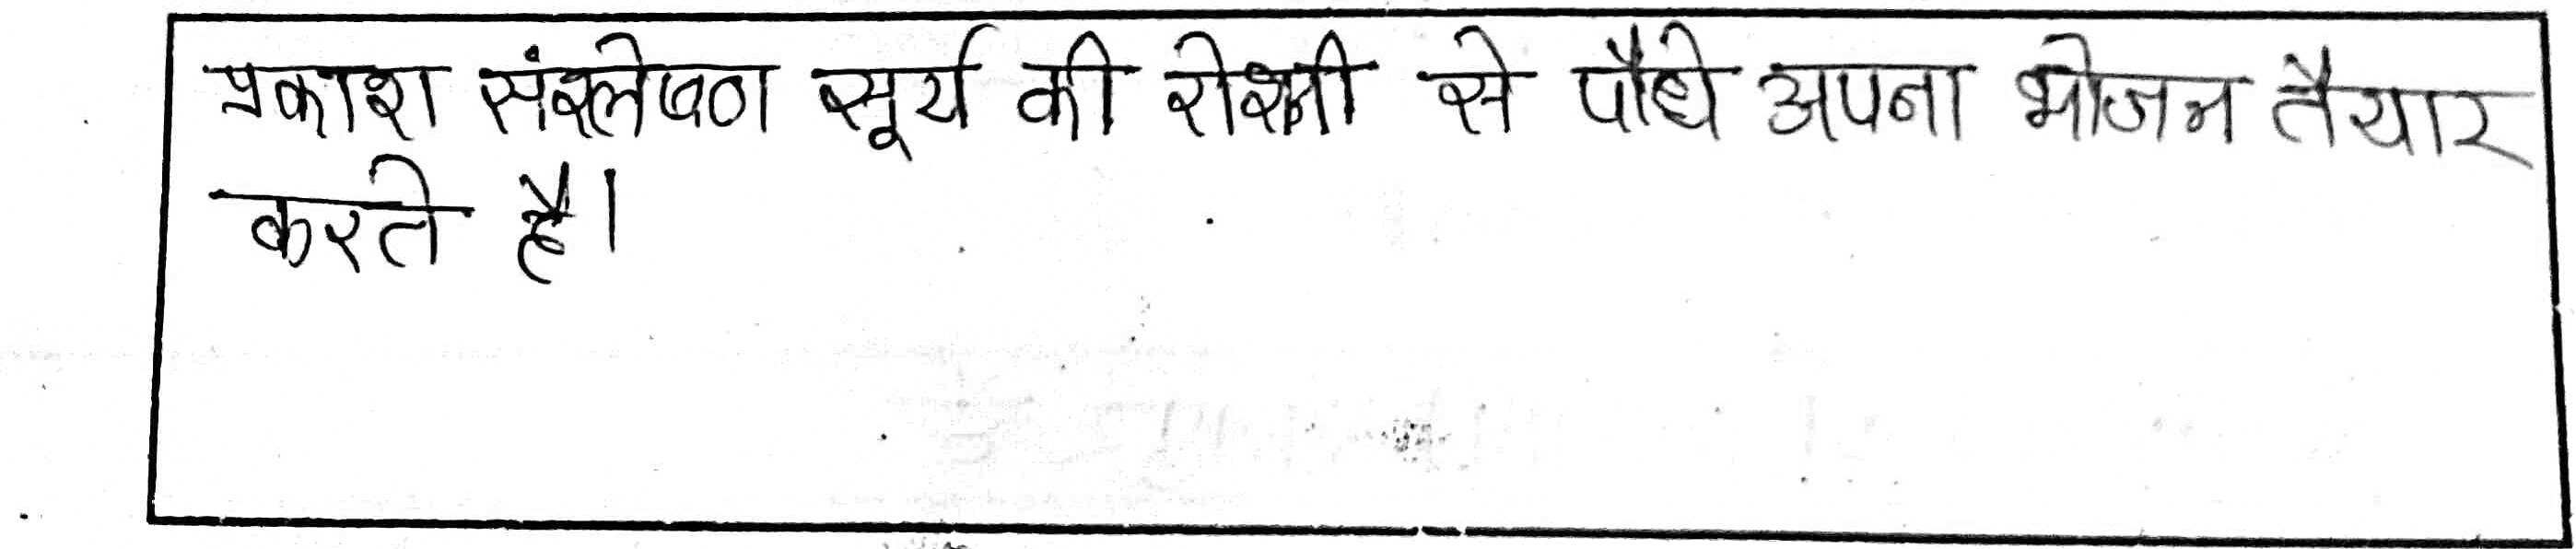 प्रकाश संश्लेषण सूर्य की रोश्नी से पौधे अपना भोजन तैयार
करते है।